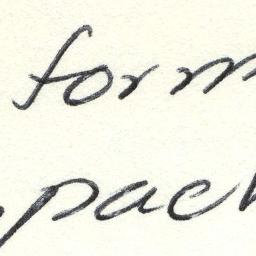 form
pach